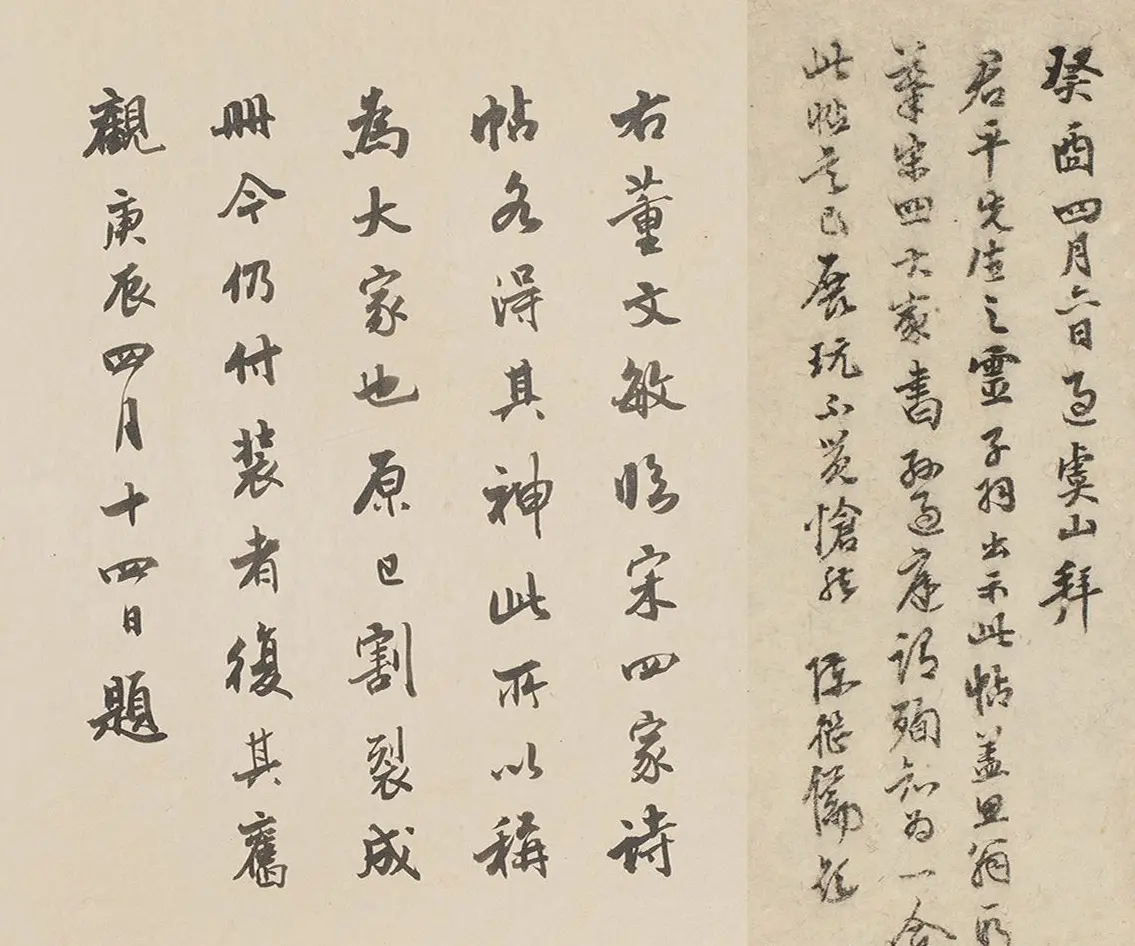 癸酉四月六日過虞山拜
君平先生之靈子羽出示此帖蓋思翁所
筆宋四大家書孫過庭謂殉知為一合
此帖是已展玩不覺愴然 陳繼儒題
右董文敏臨宋四家詩
帖各得其神此所以稱
為大家也原已割裂成
冊今仍付裝者復其舊
觀庚辰四月十四日題